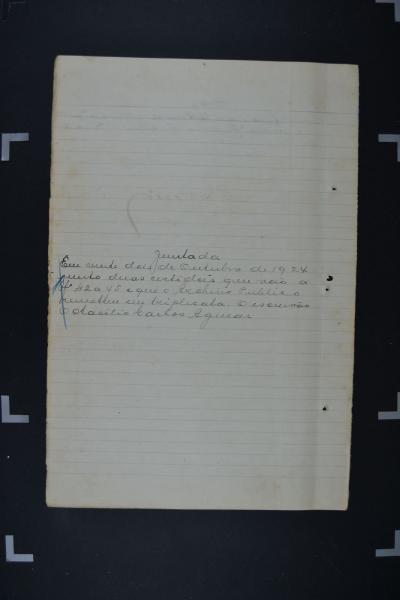 Juntada
Em vinte dois de Outubro de 1924
junto duas certidões que vão a
fs 42 a 45 e que o Archivo Publico
remetteu em triplicata. O escrivão
Otacilio Carlos Aguiar